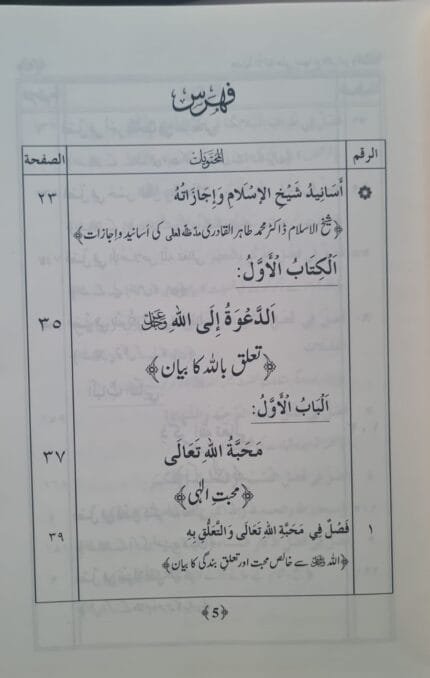 فہرس
الرقم المحتويات الصفحة
۞ أَسَانِيدُ شَيْخِ الإِسْلَامِ وَإِجَازَاتُهُ ٢٣
﴿شیخ الاسلام ڈاکٹر محمد طاہر القادری مدظلہ العالی کی أسانید و اِجازات﴾
اَلْكِتَابُ الْأَوَّلُ:
اَلدَّعْوَةُ إِلَى اللهِ ﷻ ٣٥
﴿تعلق باللہ کا بیان﴾
اَلْبَابُ الْأَوَّلُ:
مَحَبَّةُ اللهِ تَعَالَى ٣٧
﴿محبتِ الٰہی﴾
١ فَصْلٌ فِي مَحَبَّةِ اللهِ تَعَالَى وَالتَّعَلُّقِ بِهِ ٣٩
﴿اللہ ﷻ سے خالص محبت اور تعلقِ بندگی کا بیان﴾
﴿5﴾